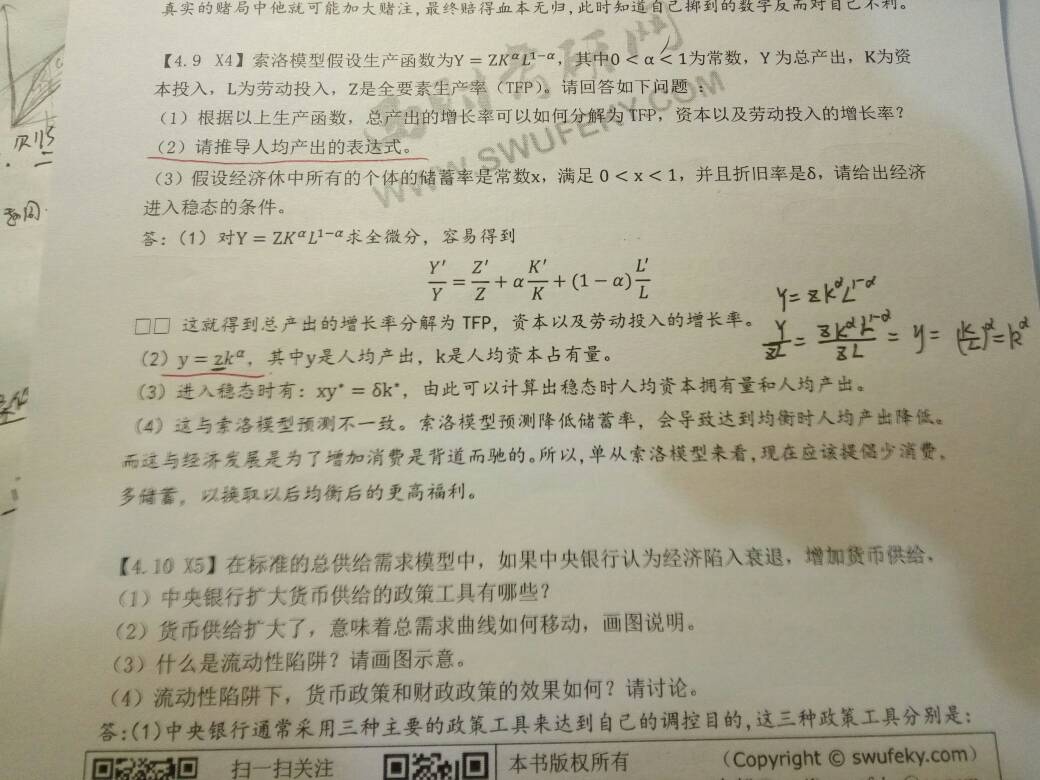 真实的赌局中他就可能加大赌注,最终赔得血本无归,此时知道自己掷到的数字反而对自己不利。
【4.9 X4】索洛模型假设生产函数为Y = ZK^αL^{1−α}，其中0 < α < 1为常数，Y 为总产出，K为资
本投入，L为劳动投入，Z是全要素生产率（TFP）。请回答如下问题：
（1）根据以上生产函数，总产出的增长率可以如何分解为 TFP，资本以及劳动投入的增长率？
（2）请推导人均产出的表达式。
（3）假设经济休中所有的个体的储蓄率是常数x，满足 0 < x < 1，并且折旧率是δ，请给出经济
进入稳态的条件。
答：（1）对Y = ZK^αL^{1−α}求全微分，容易得到
Y'/Y = Z'/Z + α K'/K + (1 − α) L'/L
□□ 这就得到总产出的增长率分解为 TFP，资本以及劳动投入的增长率。
（2）y = zk^α，其中y是人均产出，k是人均资本占有量。
（3）进入稳态时有：xy* = δk*，由此可以计算出稳态时人均资本拥有量和人均产出。
（4）这与索洛模型预测不一致。索洛模型预测降低储蓄率，会导致达到均衡时人均产出降低。
而这与经济发展是为了增加消费是背道而驰的。所以,单从索洛模型来看,现在应该提倡少消费，
多储蓄，以换取以后均衡后的更高福利。
Y = zK^αL^{1-α}
Y/zL = zK^αL^{1-α}/zL = y = (K/L)^α = k^α
【4.10 X5】在标准的总供给需求模型中，如果中央银行认为经济陷入衰退，增加货币供给，
（1）中央银行扩大货币供给的政策工具有哪些？
（2）货币供给扩大了，意味着总需求曲线如何移动，画图说明。
（3）什么是流动性陷阱？请画图示意。
（4）流动性陷阱下，货币政策和财政政策的效果如何？请讨论。
答:(1)中央银行通常采用三种主要的政策工具来达到自己的调控目的,这三种政策工具分别是:
扫一扫关注
本书版权所有
（Copyright © swufeky.com）
西财考研网
WWW.SWUFEKY.COM